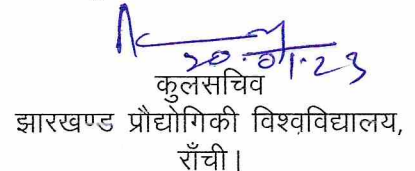 20.01.23
कुलसचिव
झारखण्ड प्रौद्योगिकी विश्वविद्यालय,
राँची।